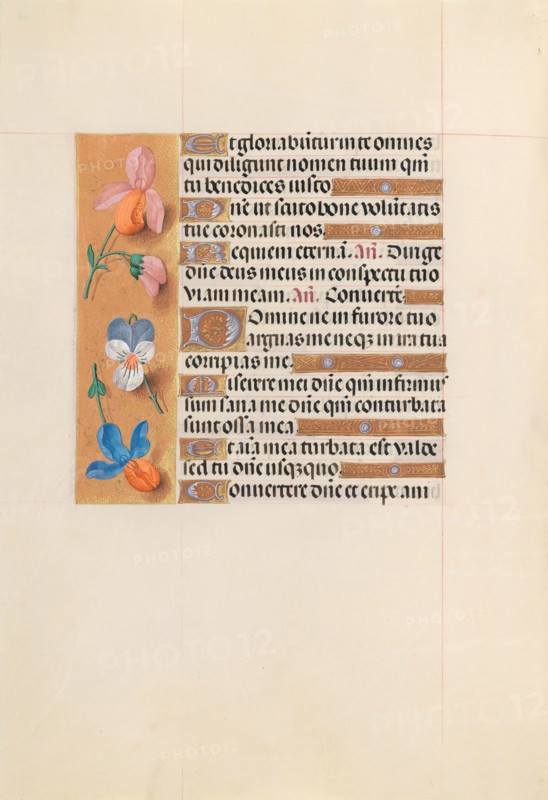 Et gloriabūtur in te omnes
qui diligunt nomen tuum qm̄
tu benedices iusto
Dn̄e ut scuto bone volūtatis
tue coronasti nos.
Requiem eternā. An̄. Dirige
dn̄e deus meus in conspectu tuo
viam meam. An̄. Convertē
Domine ne in furore tuo
arguas me neqȝ in ira tua
corripias me.
Miserere mei dn̄e qm̄ infirmus
sum sana me dn̄e qm̄ conturbata
sunt ossa mea
Et aīa mea turbata est valde
sed tu dn̄e usqȝquo.
Convertere dn̄e et eripe am̄
PHOTO12